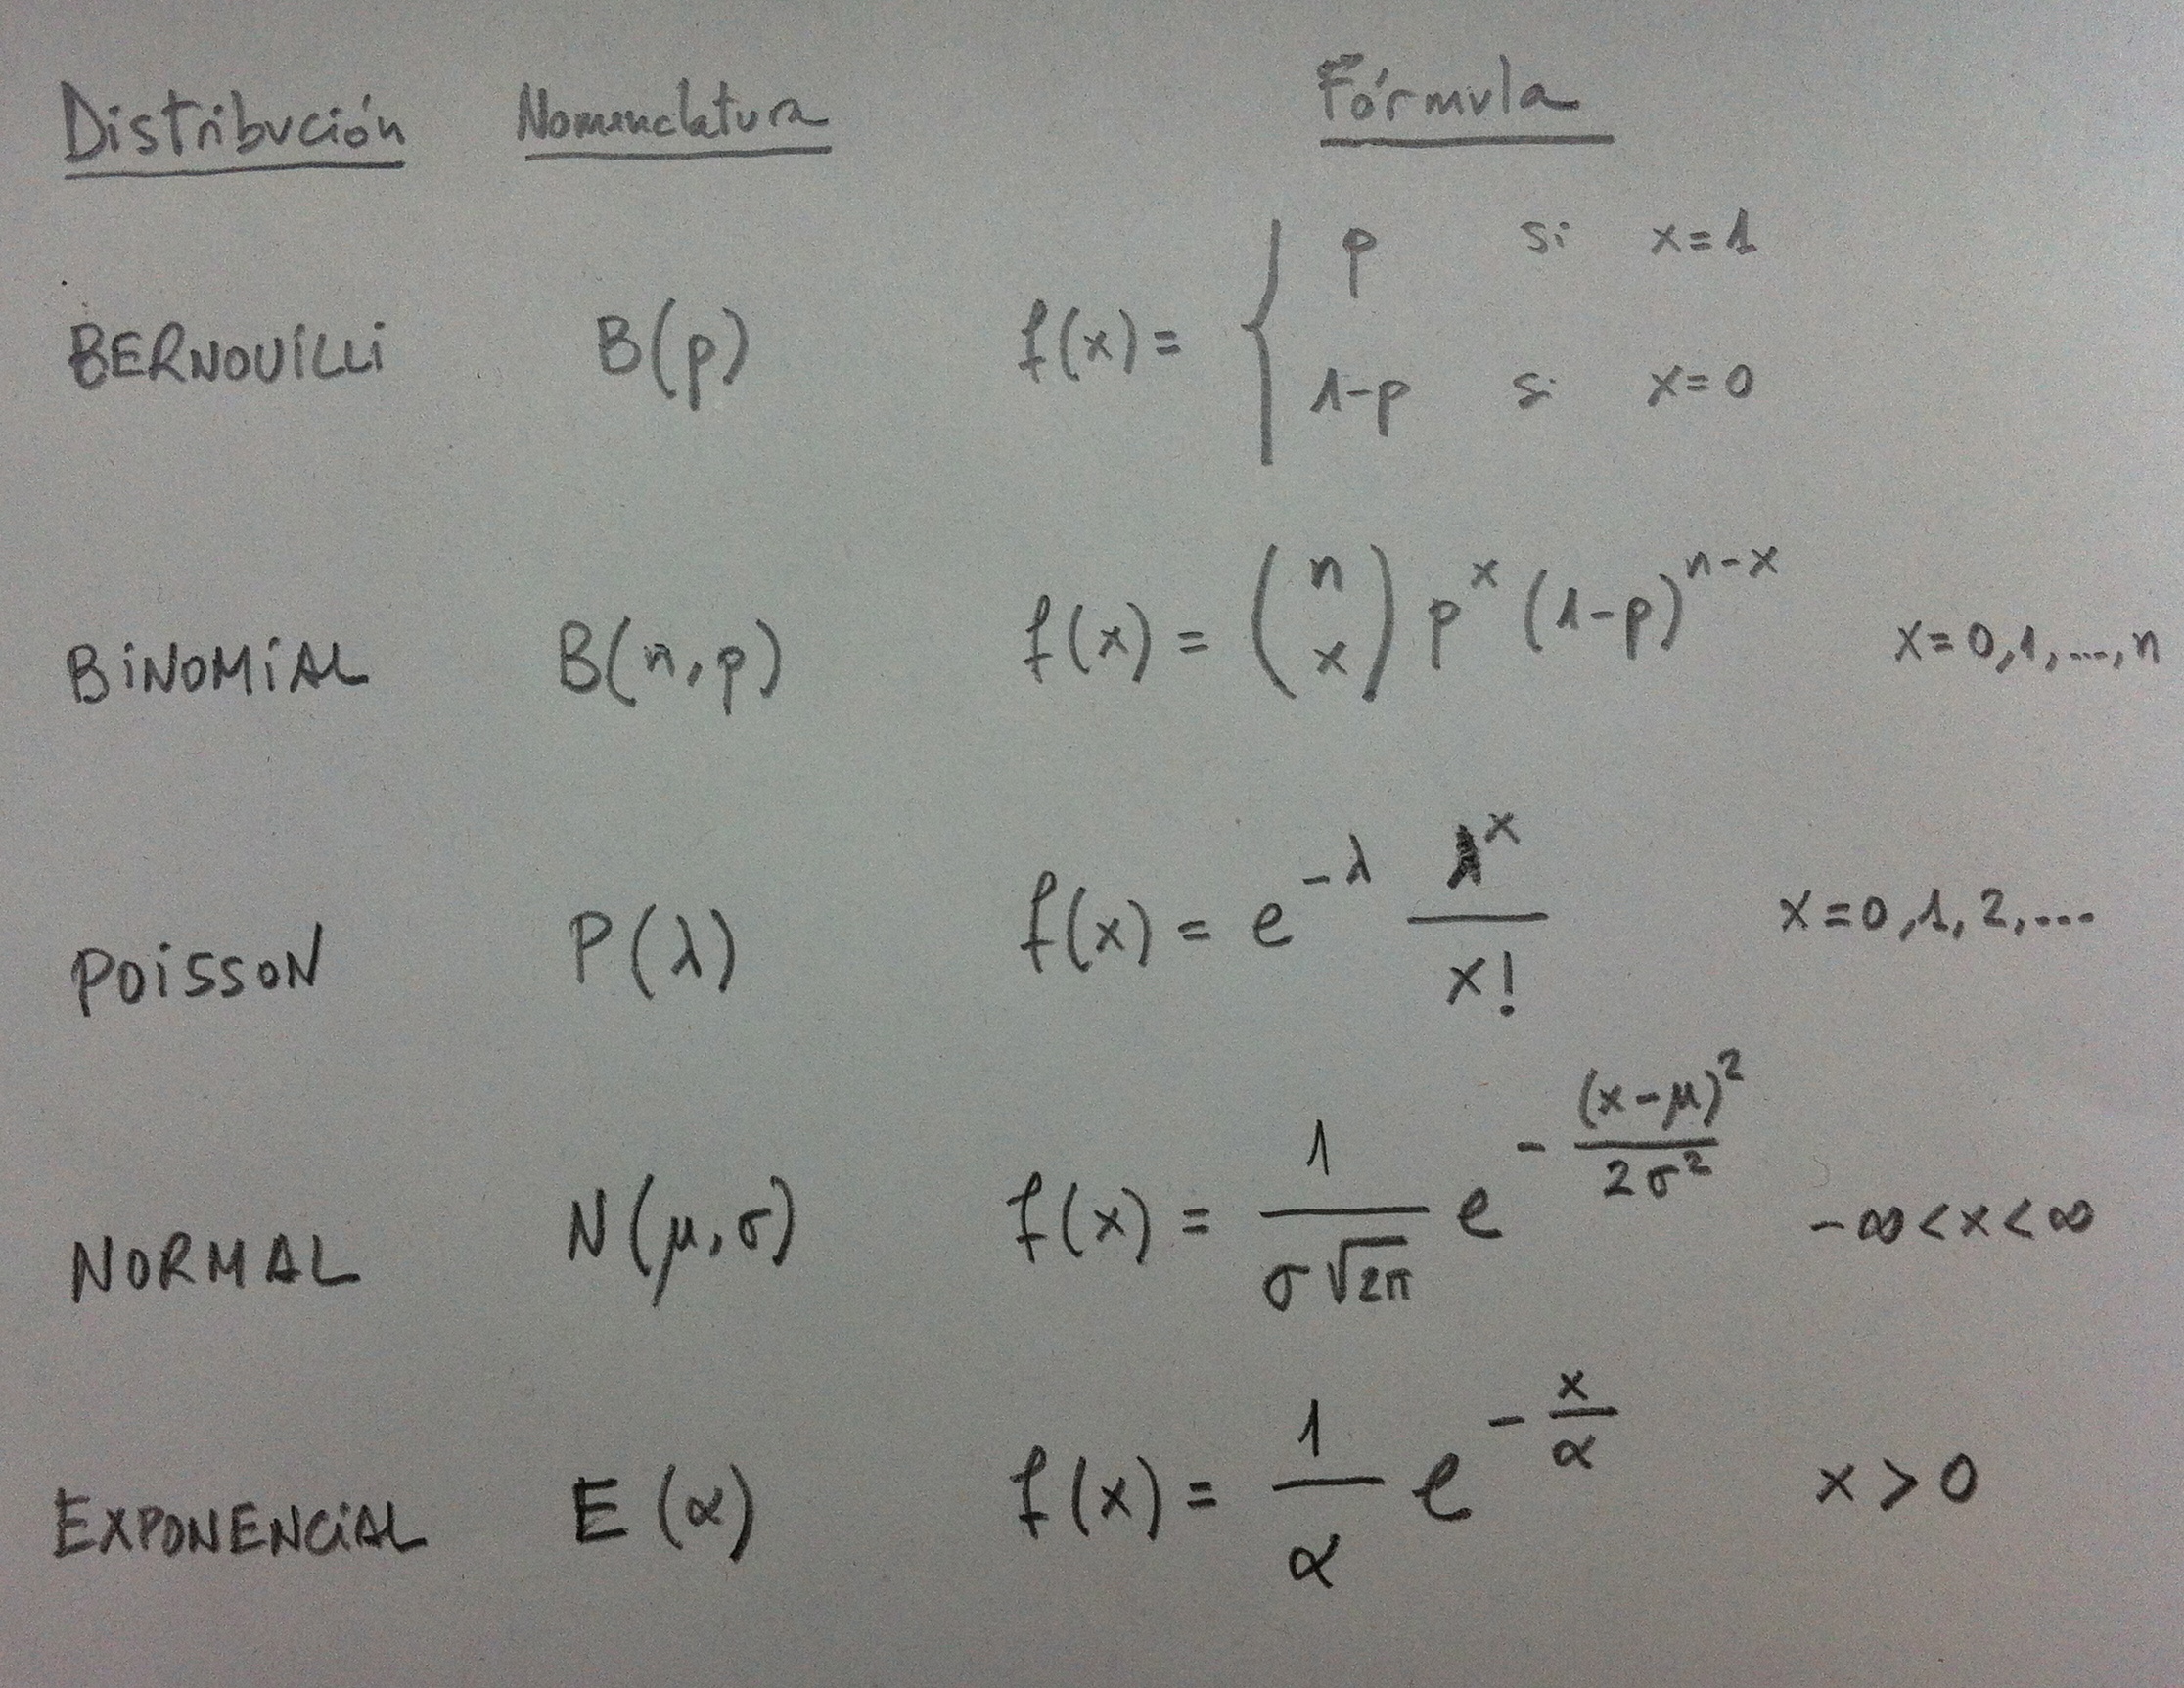 Distribución Nomenclatura Fórmula
BERNOUILLI B(p) f(x) = { p si x=1
1-p si x=0
BINOMIAL B(n,p) f(x) = (n x) p^x (1-p)^(n-x) x=0,1,...,n
POISSON P(λ) f(x) = e^(-λ) λ^x / x! x=0,1,2,...
NORMAL N(μ,σ) f(x) = 1 / σ√2π e^(-(x-μ)² / 2σ²) -∞<x<∞
EXPONENCIAL E(α) f(x) = 1 / α e^(-x/α) x>0